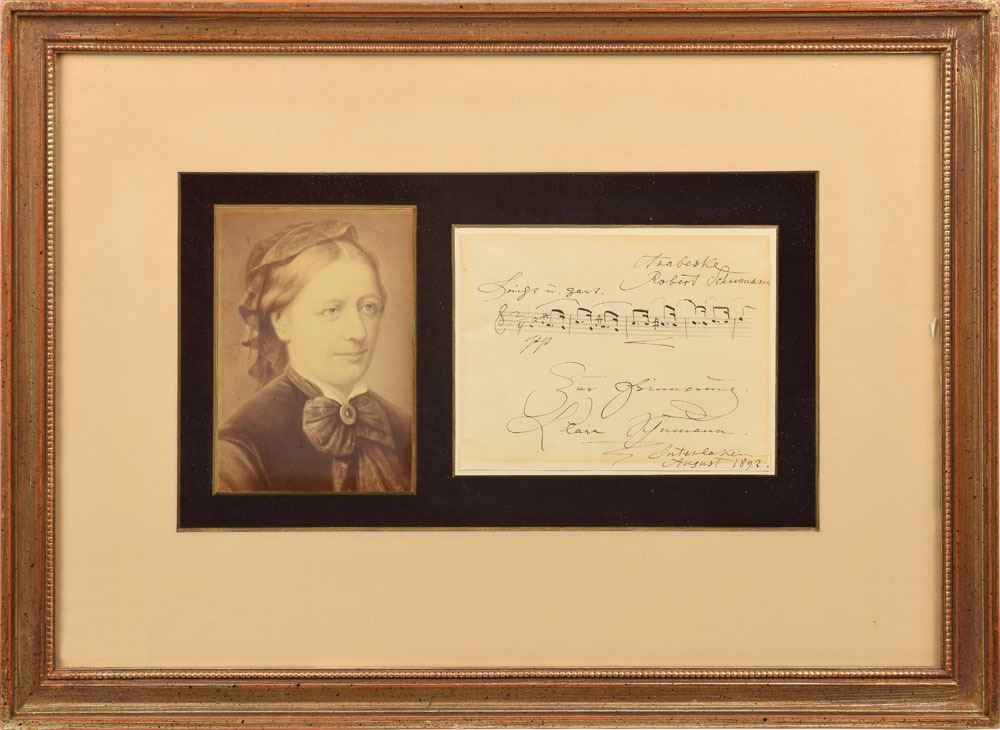 Arabeske
Robert Schumann
Leicht u. zart.
pp.
Zur Erinnerung.
Clara Schumann.
Interlaken
August 1892.